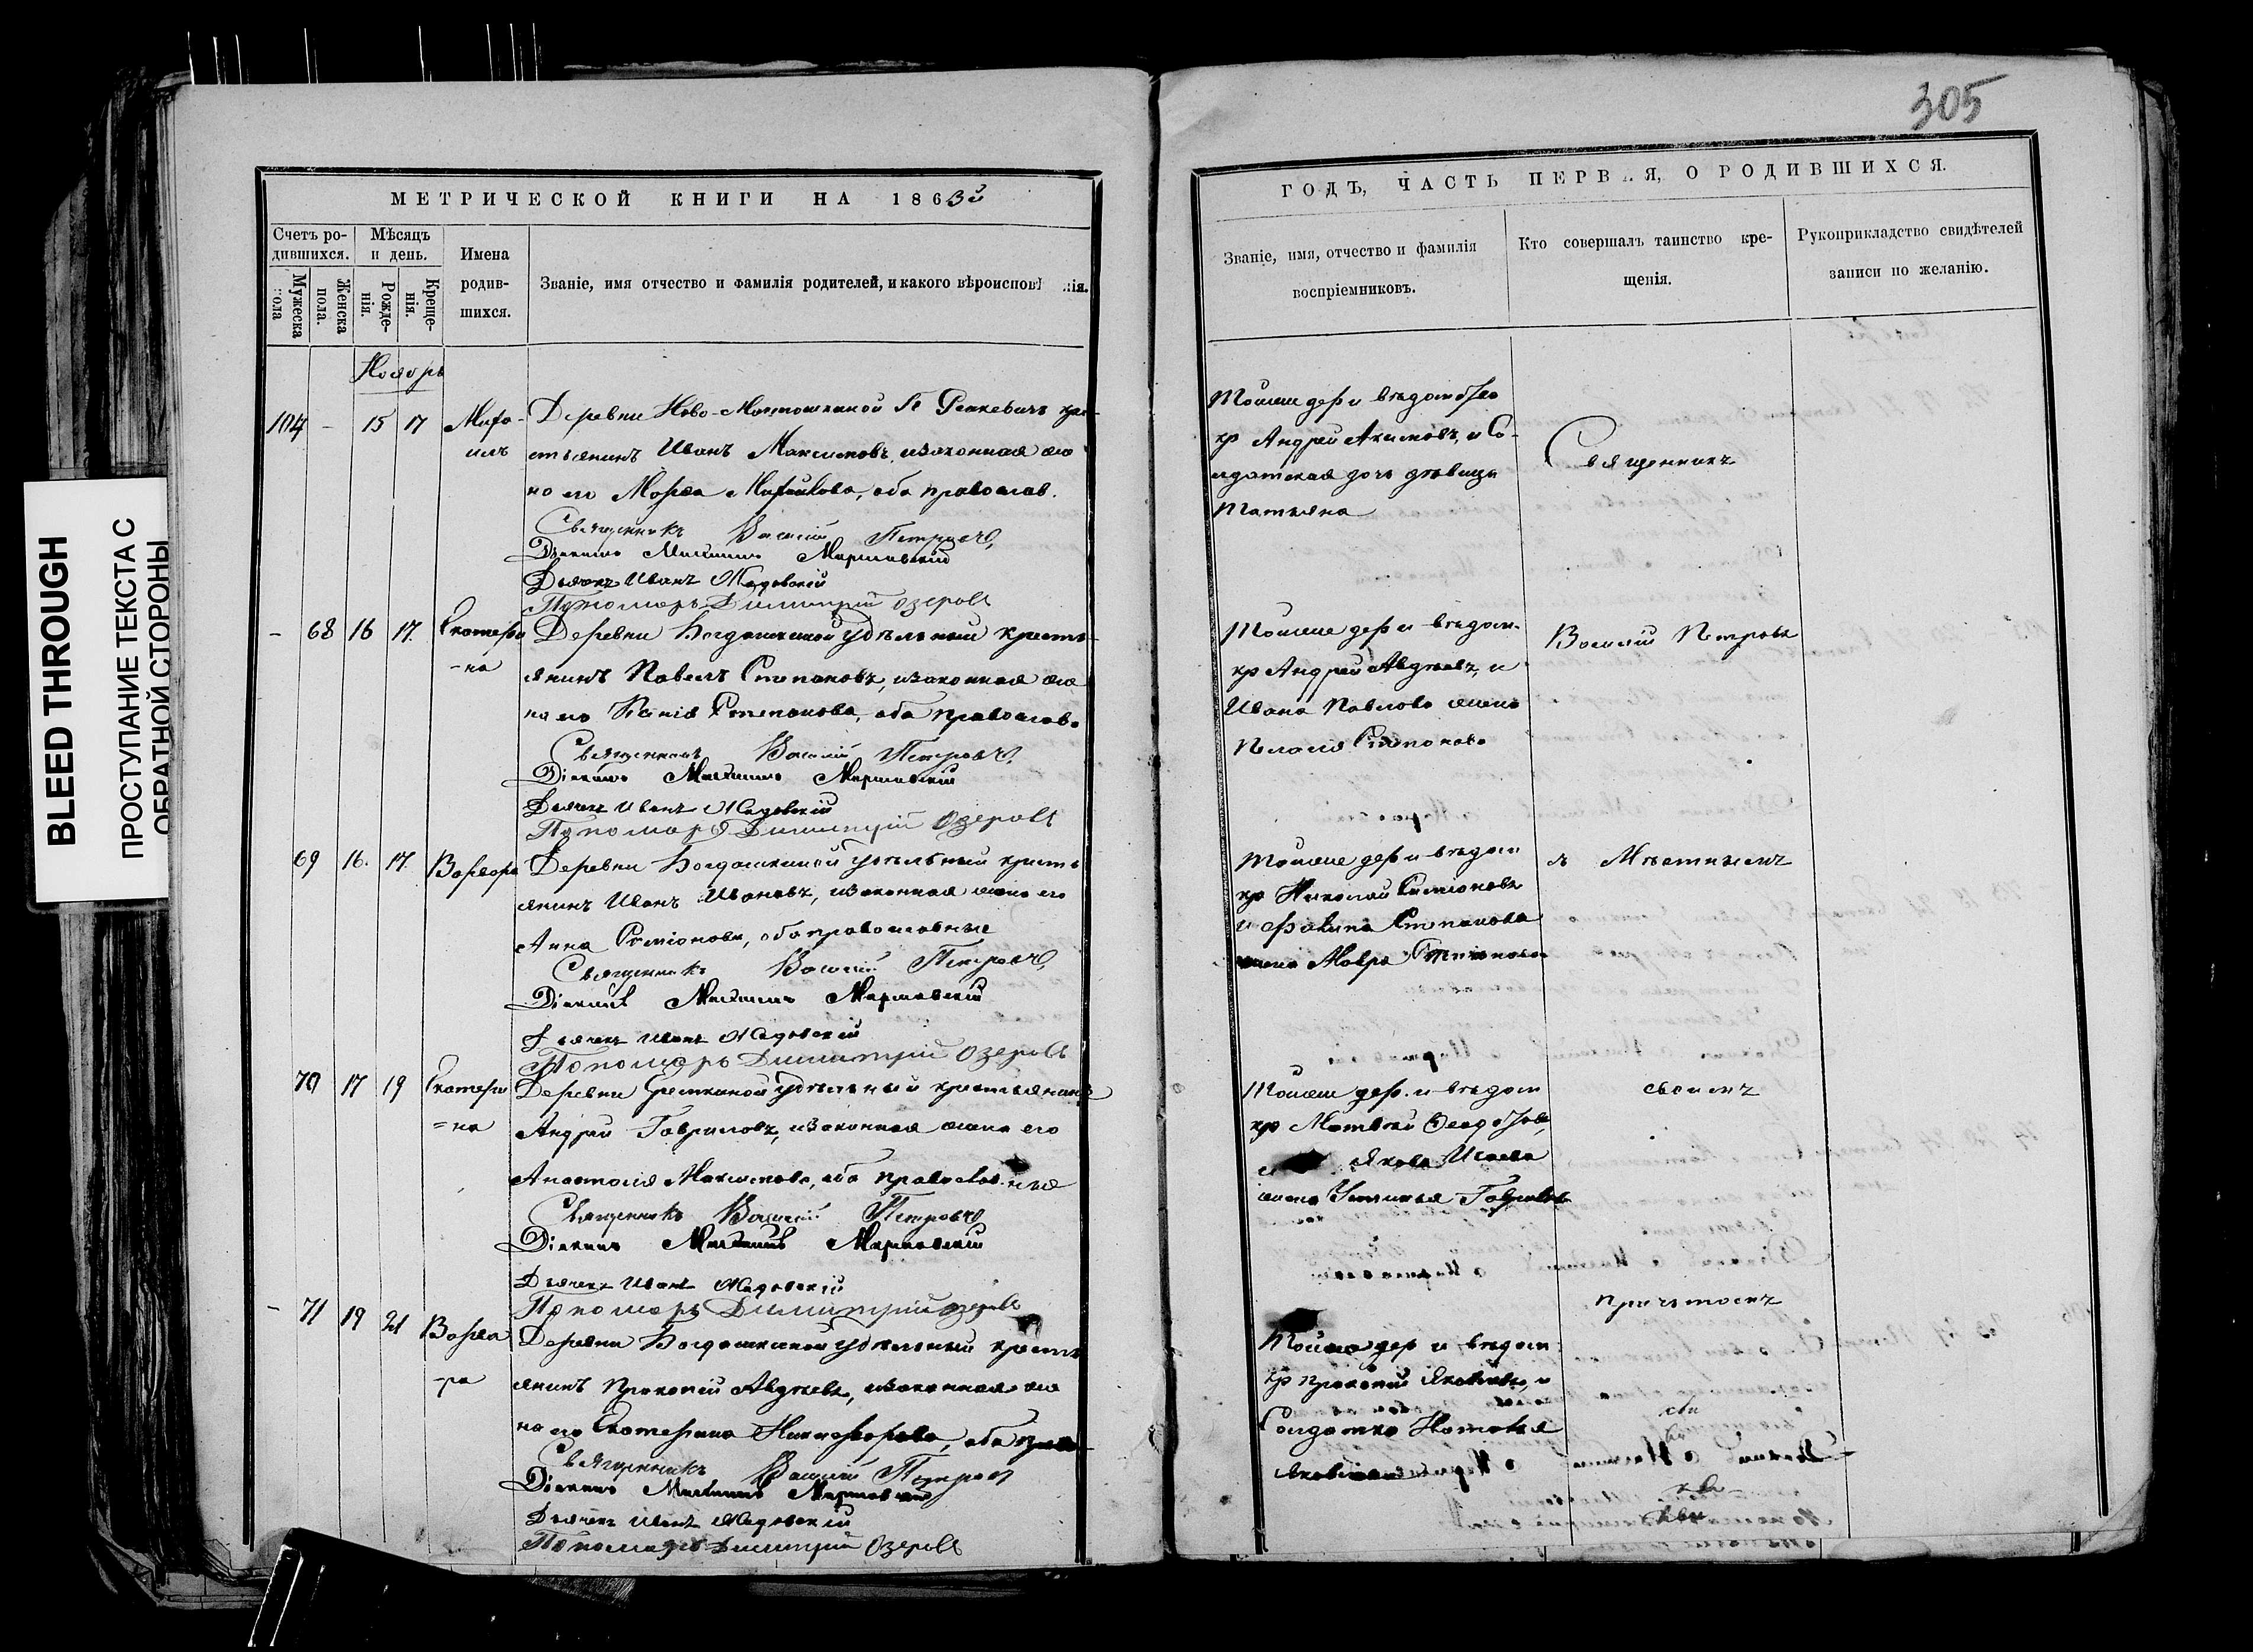 BLEED THROUGH
ПРОСТУПАНИЕ ТЕКСТА С
ОБРАТНОЙ СТОРОНЫ
МЕТРИЧЕСКОЙ КНИГИ НА 1863й
Счетъ ро-
дившихся.
Мужеска
пола
Женска
пола.
Мѣсяцъ
и день.
Рожде-
нія.
Креще-
нія.
Имена
родив-
шихся.
Званіе, имя отчество и фамилія родителей, и какого вѣроисповѣ нія.
Ноябрь
104 - 15 17 Миха-
илъ
Деревни Ново- кре-
стьянинъ Иванъ Максимовъ, изаконная же
на его Марѳа Михайлова, оба православ.
Священникъ Василій Петровъ,
Діаконъ
Дьячекъ Иванъ Жадовскій
Пономарь Димитрій Озеровъ
- 68 16 17. Екатери
-на
Деревни Богдашкиной удѣльный кресть-
янинъ Павелъ Степановъ, изаконная же
на его Ксенія Степанова, оба православ.
Священникъ Василій Петровъ,
Діаконъ
Дьячекъ Иванъ Жадовскій
Пономарь Димитрій Озеровъ
69 16. 17. Варвара
Деревни Богдашкиной удѣльный кресть
янинъ Иванъ Ивановъ, изаконная жена его
Анна Симіонова, оба православные
Священникъ Василій Петровъ,
Діаконъ
Дьячекъ Иванъ Жадовскій
Пономарь Димитрій Озеровъ
70 17 19 Екатери
=на
Деревни удѣльный крестьянинъ
Андрей Гавриловъ, изаконная жена его
Анастасія Максимова, оба православныя
Священникъ Василій Петровъ
Діаконъ
Дьячекъ Иванъ Жадовскій
Пономарь Димитрій Озеровъ
- 71 19 21 Варва
-ра
Деревни Богдашкиной удѣльный кресть
янинъ Прокопій Авдѣевъ, изаконная же
на его Екатерина Никифорова, оба
Священникъ Василій Петровъ
Діаконъ
Дьячекъ Иванъ Жадовскій
Пономарь Димитрій Озеровъ
305
ГОДЪ, ЧАСТЬ ПЕРВАЯ, О РОДИВШИХСЯ.
Званіе, имя, отчество и фамилія
воспріемниковъ.
Кто совершалъ таинство кре-
щенія.
Рукоприкладство свидѣтелей
записи по желанію.
Тойже дер и вѣдомства
кр Андрей Акимовъ, и Со-
лдатская дочь дѣвица
Татьяна
Священникъ
Тойже дер и вѣдом.
кр Андрей Авдѣевъ, и
Ивана Павлова жена
Пелагія Степанова
Василій Петровъ
Тойже дер и вѣдом
кр Николай Симіоновъ
и Степанова
жена Мавра
съ Мѣстнымъ
Тойже дер. и вѣдом
кр Матвей
и Якова Исаева
жена Устинья Гаврилова
своимъ
причтомъ
Тойже дер и вѣдом
кр Прокопій Яковлевъ, и
Солдатка Наталья
Яковлева